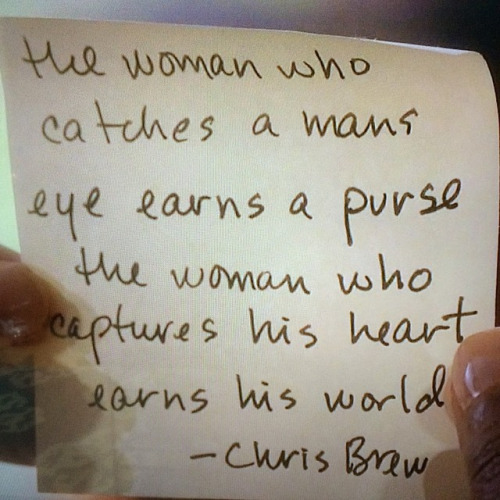 the woman who
catches a mans
eye earns a purse
the woman who
captures his heart
earns his world
- Chris Brew